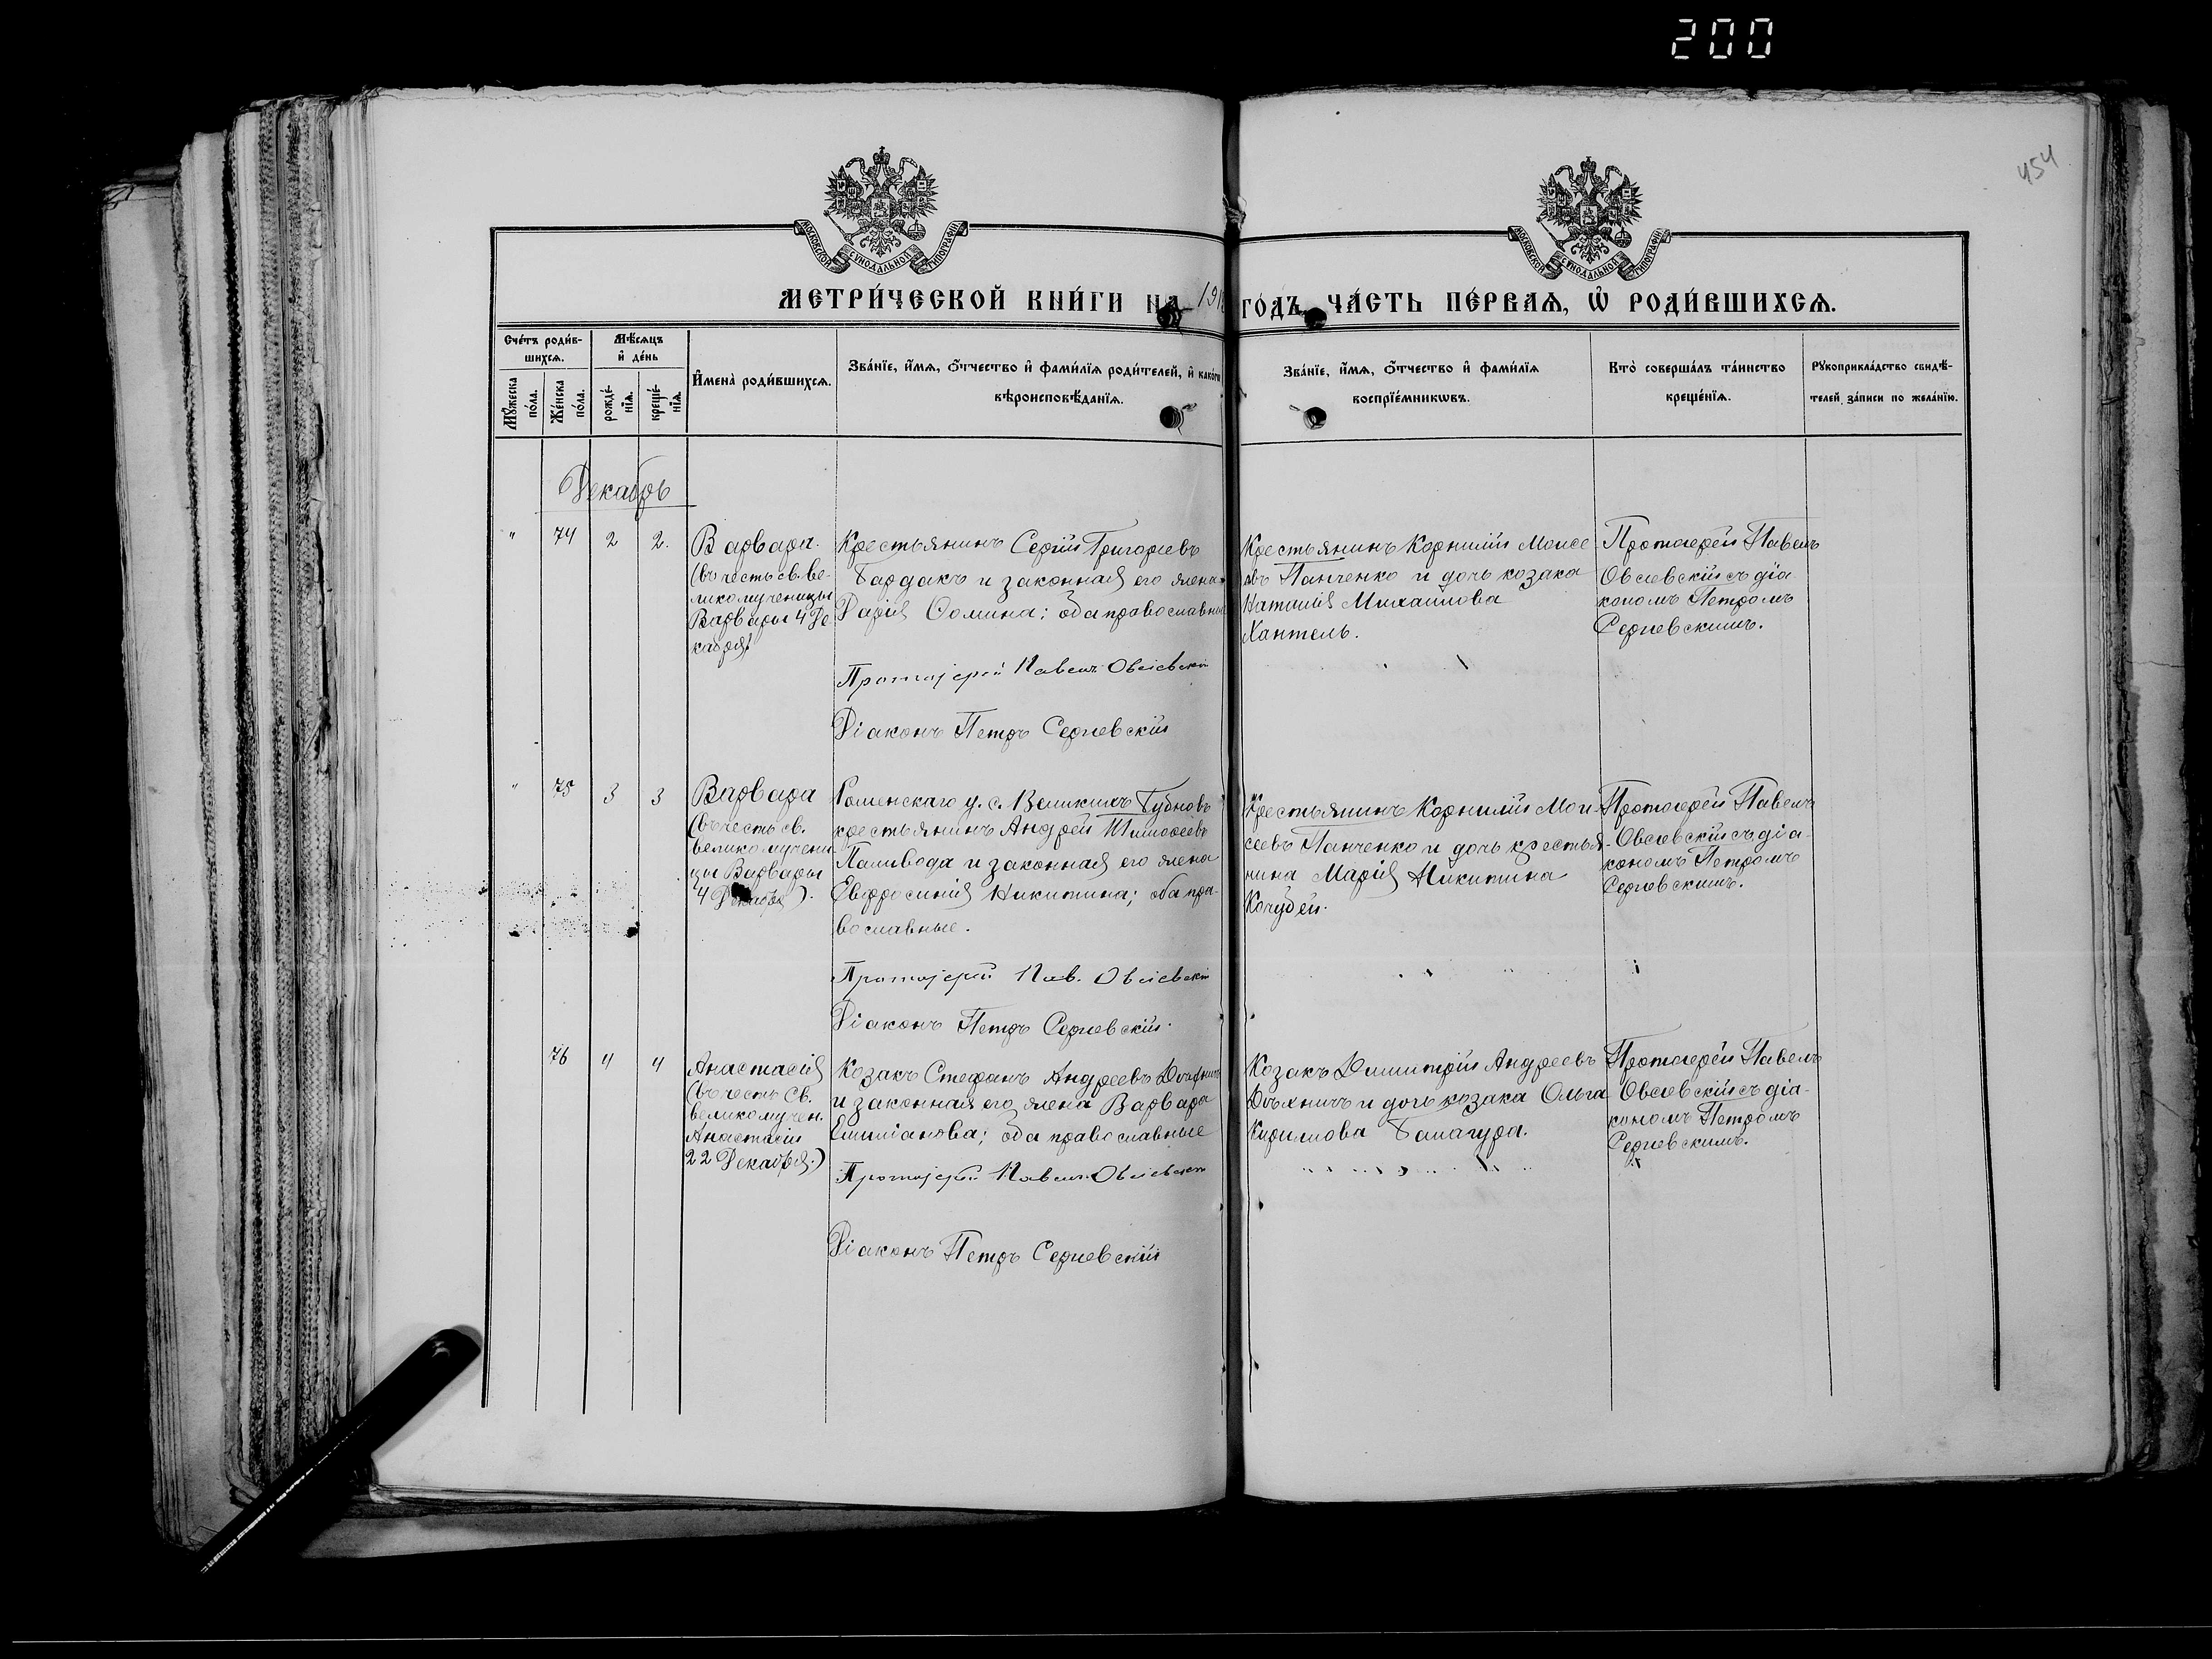 200
454
МОСКОВСКОЙ СѴНОДАЛЬНОЙ ТИПОГРАФІИ
МОСКОВСКОЙ СѴНОДАЛЬНОЙ ТИПОГРАФІИ
МЕТРИ́ЧЕСКОЙ КНИ́ГИ НА 191
ГО́ДЪ, ЧА́СТЬ ПЕ́РВАЯ, Ѡ҆ РОДИ́ВШИХСѦ.
Сче́тъ роди́в-
шихсѧ.
Мꙋ́жеска по́ла.
Же́нска по́ла.
Мѣ́сѧцъ
и҆ де́нь
рожде́-нїѧ.
креще́-нїѧ.
И҆мена̀ роди́вшихсѧ.
Зва́нїе, и҆́мѧ, ѻ҆́тчество и҆ фами́лїѧ роди́телей, и҆ како́гѡ
вѣроисповѣ́данїѧ.
Зва́нїе, и҆́мѧ, ѻ҆́тчество и҆ фами́лїѧ
воспрїе́мникѡвъ.
Кто̀ соверша́лъ та́инство
креще́нїѧ.
Рꙋкоприкла́дство свидѣ́-
телей за́писи по жела́нїю.
Декабрь
" 74 2 2.
Варвара.
(въ честь св. ве-
ликомученицы
Варвары 4 Де
кабря)
Крестьянинъ Сергій Григорьевъ
Бардакъ и законная его жена
Дарія Ѳомина; оба православные
Протоіерей Павелъ Овсіевскій
Діаконъ Петръ Сергіевскій
Крестьянинъ Корнилій Моисе
евъ Панченко и дочь козака
Наталія Михаилова
Хантель.
Протоіерей Павелъ
Овсіевскій съ діа
кономъ Петромъ
Сергіевскимъ.
" 75 3 3
Варвара
(въ честь св.
великомучени
цы Варвары
4 Декабря).
Роменскаго у. с. Великихъ Бубновъ
крестьянинъ Андрей Тимоѳеевъ
Паливода и законная его жена
Евфросинія Никитина; оба пра-
вославные.
Протоіерей Пав. Овсіевскій
Діаконъ Петръ Сергіевскій.
Крестьянинъ Корнилій Мои-
сеевъ Панченко и дочь крестья-
нина Марія Никитина
Кочубей.
Протоіерей Павелъ
Овсіевскій съ діа-
кономъ Петромъ
Сергіевскимъ.
76 4 4
Анастасія
(въ честь Св.
великомучен.
Анастасіи
22 Декабря.)
Козакъ Стефанъ Андреевъ
и законная его жена Варвара
Емиліанова; оба православные
Протоіерей Павелъ Овсіевскій
Діаконъ Петръ Сергіевскій
Козакъ Димитрій Андреевъ
и дочь козака Ольга
Кирилова Балагура.
Протоіерей Павелъ
Овсіевскій съ діа-
кономъ Петромъ
Сергіевскимъ.